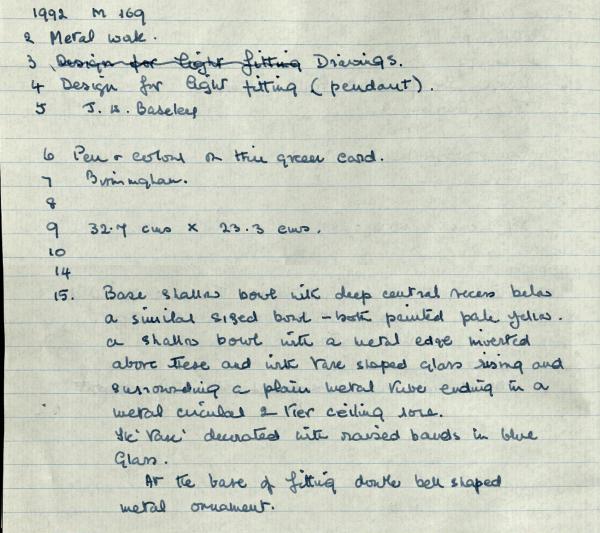 1992 M 169
2 Metal work.
3 Design for light fitting Drawings.
4 Design for light fitting (pendant).
5 J. H. Baseley
6 Pen + colour on thin green card.
7 Birmingham.
8
9 32.7 cms × 23.3 cms.
10
14
15. Base shallow bowl with deep central recess below
a similar sized bowl - both painted pale yellow.
a shallow bowl with a metal edge inverted
above these and with vase shaped glass rising and
surrounding a plain metal tube ending in a
metal circular 2 tier ceiling rose.
The 'Vase' decorated with raised bands in blue
Glass.
At the base of fitting double bell shaped
metal ornament.